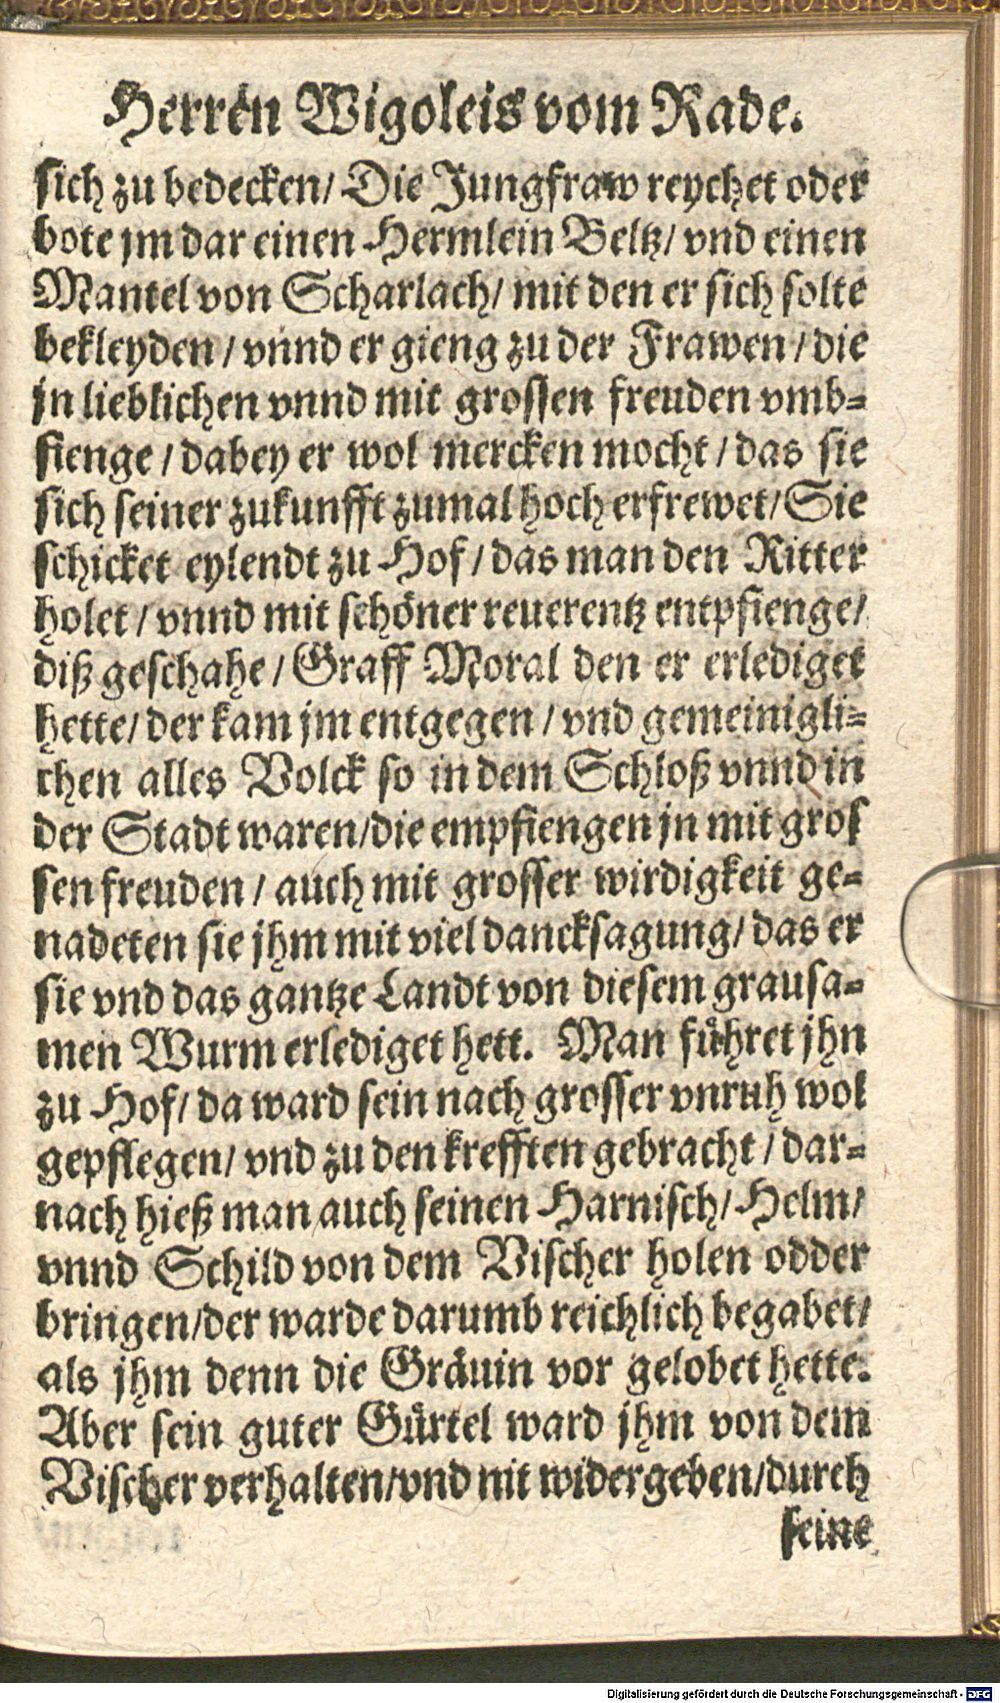 Herren Wigoleis vom Rade.
sich zu bedecken/ Die Jungfraw reychet oder
bote jm dar einen Hermlein Beltz/ vnd einen
Mantel von Scharlach/ mit den er sich solte
bekleyden / vnnd er gieng zu der Frawen / die
jn lieblichen vnnd mit grossen freuden vmb=
fienge / dabey er wol mercken mocht / das sie
sich seiner zukunfft zumal hoch erfrewet/ Sie
schicket eylendt zu Hof / das man den Ritter
holet / vnnd mit schöner reuerentz entpfienge/
diß geschahe / Graff Moral den er erlediget
hette/ der kam jm entgegen / vnd gemeinigli=
chen alles Volck so in dem Schloß vnnd in
der Stadt waren/die empfiengen jn mit gros
sen freuden / auch mit grosser wirdigkeit ge=
nadeten sie jhm mit viel dancksagung/ das er
sie vnd das gantze Landt von diesem grausa=
men Wurm erlediget hett. Man führet jhn
zu Hof/ da ward sein nach grosser vnruh wol
gepflegen/ vnd zu den krefften gebracht / dar=
nach hieß man auch seinen Harnisch/ Helm/
vnnd Schild von dem Vischer holen odder
bringen/der warde darumb reichlich begabet/
als jhm denn die Gräuin vor gelobet hette.
Aber sein guter Gürtel ward jhm von dem
Vischer verhalten/vnd nit widergeben/durch
seine
Digitalisierung gefördert durch die Deutsche Forschungsgemeinschaft - DFG